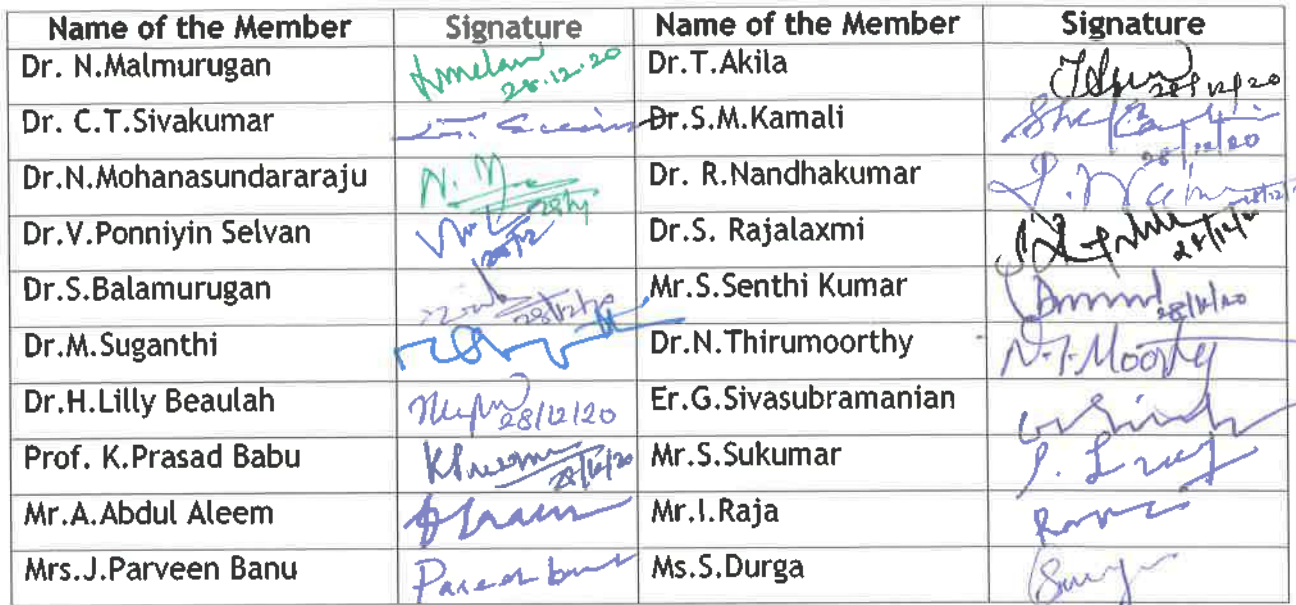 Name of the Member Signature Name of the Member Signature
Dr. N.Malmurugan 28.12.20 Dr.T.Akila 28/12/20
Dr. C.T.Sivakumar Dr.S.M.Kamali 28/12/20
Dr.N.Mohanasundararaju Dr. R.Nandhakumar
Dr.V.Ponniyin Selvan 28/12 Dr.S. Rajalaxmi 28/12/20
Dr.S.Balamurugan 28/12/20 Mr.S.Senthi Kumar 28/12/20
Dr.M.Suganthi Dr.N.Thirumoorthy N.T.Moorthy
Dr.H.Lilly Beaulah 28/12/20 Er.G.Sivasubramanian
Prof. K.Prasad Babu 28/12/20 Mr.S.Sukumar
Mr.A.Abdul Aleem Mr.I.Raja
Mrs.J.Parveen Banu Ms.S.Durga